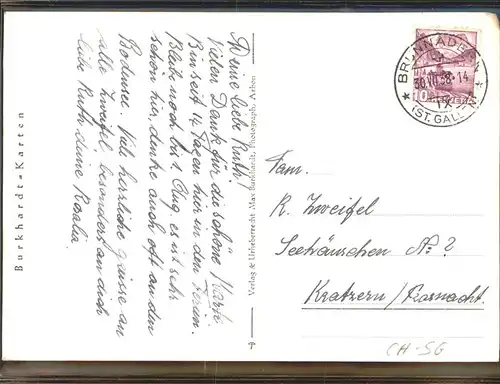 Meine liebe Ruth!
Vielen Dank für die schöne Karte
Bin seit 14 Tagen hier in den Ferien.
Bleibe noch bis 1 Aug es ist sehr
schön hier, denke auch oft an den
Bodensee. Viele herzliche Grüsse an
alle Zweifel besonders an dich
liebe Ruth deine Rosalia.
Burkhardt-Karten
Verlag & Urheberrecht Max Burkhardt, Photograph, Arbon
BRUNNADERN
30.VII.38-14
(ST. GALLEN)
10 HELVETIA
Fam.
K. Zweifel
Seehäuschen No 2
Kratzern / Rosnacht
CH-SG